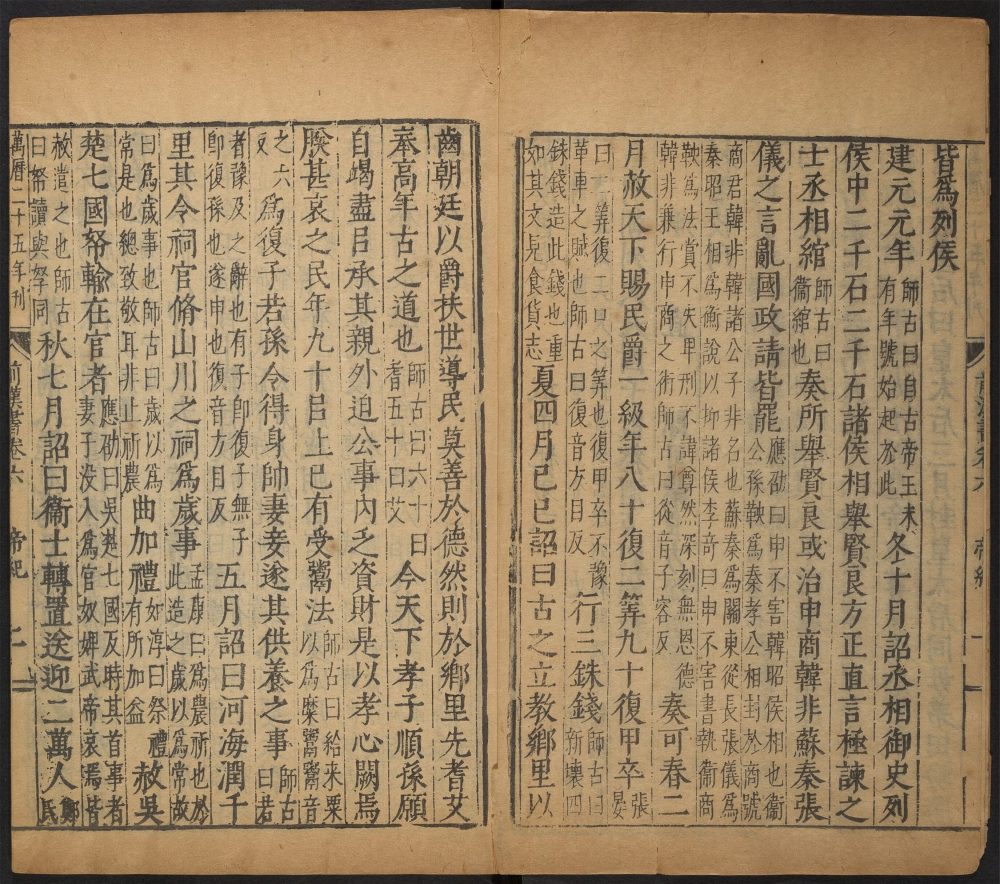 皆爲列侯
建元元年師古曰自古帝王未有年號始起於此冬十月詔丞相御史列
侯中二千石二千石諸侯相舉賢良方正直言極諫之
士丞相綰師古曰衞綰也奏所舉賢良或治申商韓非蘇秦張
儀之言亂國政請皆罷應劭曰申不害韓昭侯相也衞公孫鞅爲秦孝公相封於商號
商君韓非韓諸公子非名也蘇秦爲關東從長張儀爲秦昭王相爲衡說以抑諸侯李奇曰申不害書執衞商
鞅爲法賞不失卑刑不諱尊然深刻無恩德韓非兼行申商之術師古曰從音子容反奏可春二
月赦天下賜民爵一級年八十復二筭九十復甲卒張晏
曰二筭復二口之筭也復甲卒不豫革車之賦也師古曰復音方目反行三銖錢師古曰新壞四
銖錢造此錢也重如其文見食貨志夏四月己巳詔曰古之立教鄉里以
齒朝廷以爵扶世導民莫善於德然則於鄉里先耆艾
奉高年古之道也師古曰六十曰耆五十曰艾今天下孝子順孫願
自竭盡㠯承其親外迫公事內乏資財是以孝心闕焉
朕甚哀之民年九十㠯上已有受鬻法師古曰給米粟以爲糜鬻鬻音
之六反爲復子若孫令得身帥妻妾遂其供養之事師古曰若
者豫及之辭也有子卽復子無子卽復孫也遂申也復音方目反五月詔曰河海潤千
里其令祠官脩山川之祠爲歲事孟康曰爲農祈也於此造之歲以爲常故
曰爲歲事也師古曰歲以爲常是也總致敬耳非止祈農曲加禮如淳曰祭禮有所加益赦吳
楚七國帑輸在官者應劭曰吳楚七國反時其首事者妻子没入爲官奴婢武帝哀焉皆
赦遣之也師古曰帑讀與孥同秋七月詔曰衞士轉置送迎二萬人鄭氏
萬曆二十五年刊 前漢書卷六 帝紀 二